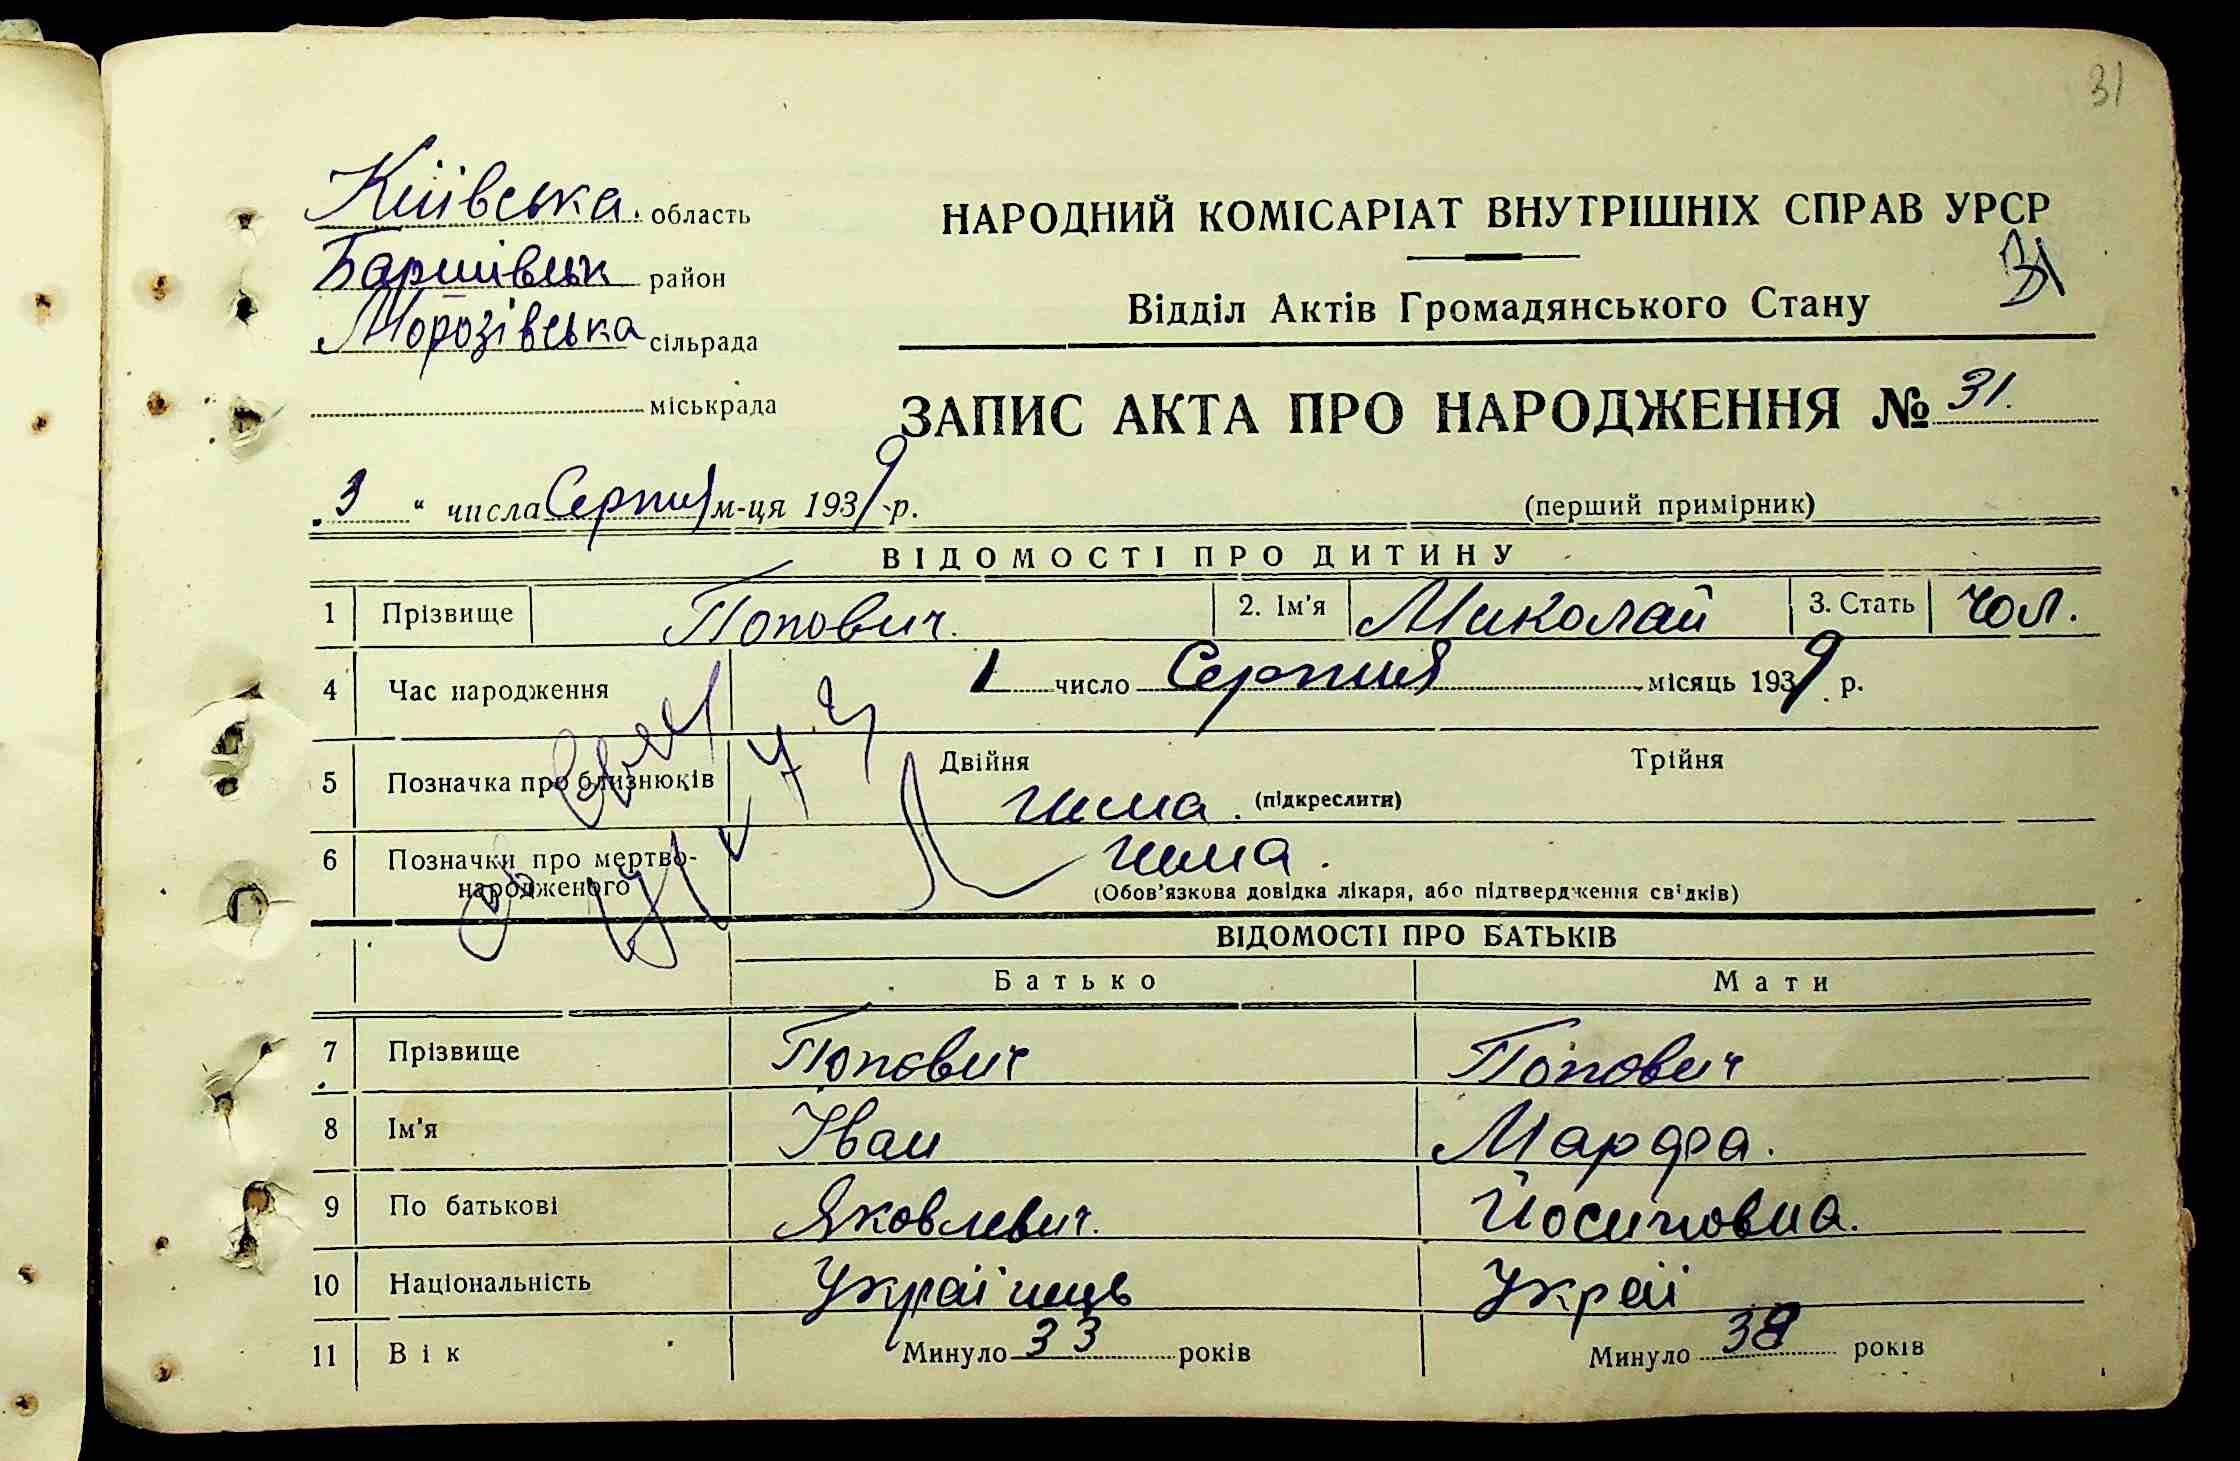 31
Київська область
НАРОДНИЙ КОМІСАРІАТ ВНУТРІШНІХ СПРАВ УРСР
31
Баришівськ район
Відділ Актів Громадянського Стану
Морозівська сільрада
міськрада
ЗАПИС АКТА ПРО НАРОДЖЕННЯ № 31.
„3“ числа Серпня м-ця 1939 р.
(перший примірник)
ВІДОМОСТІ ПРО ДИТИНУ
1 Прізвище Попович. 2. Ім'я Миколай 3. Стать чол.
4 Час народження 1 число Серпня місяць 1939 р.
5 Позначка про близнюків Двійня Трійня
нема. (підкреслити)
6 Позначки про мертво-
народженого нема.
(Обов'язкова довідка лікаря, або підтвердження свідків)
ВІДОМОСТІ ПРО БАТЬКІВ
Батько Мати
7 Прізвище Попович Попович
8 Ім'я Іван Марфа.
9 По батькові Яковлевич. Йосиповна.
10 Національність Українець Украї
11 Вік Минуло 33 років Минуло 38 років